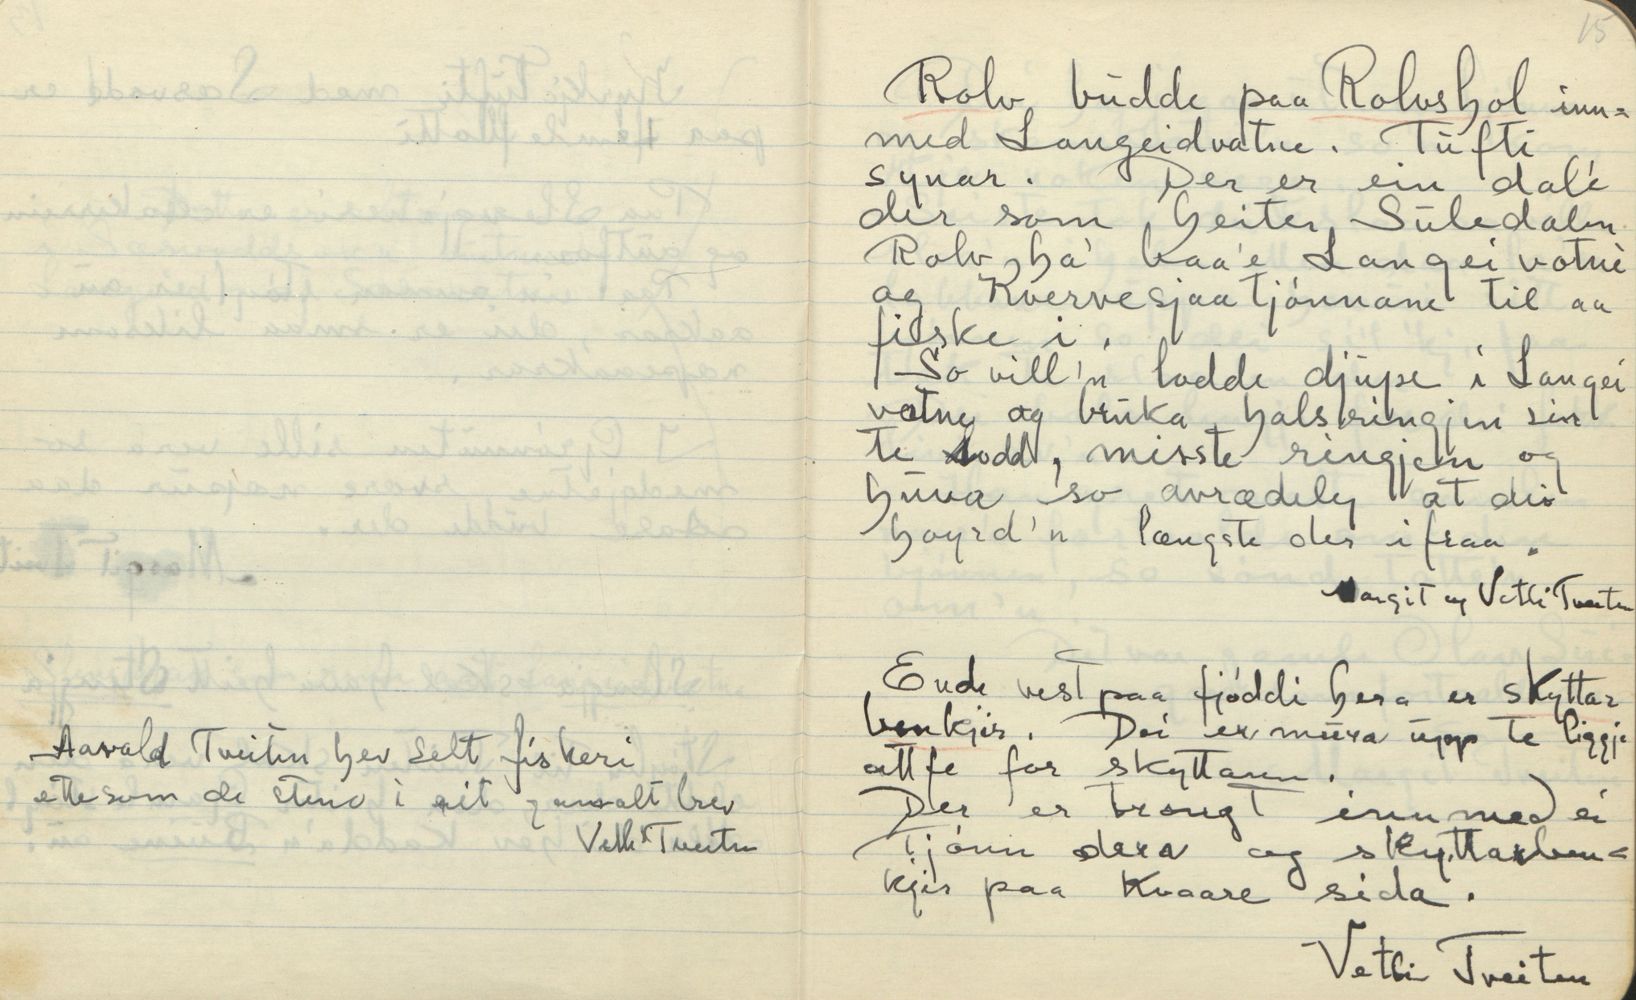 Aasvald Tveiten hev selt fiskeri
ettesom de steno i eit gamalt brev
Vetli Tveiten
15
Rolv büdde paa Rolvshol inn=
med Langeidvatne. Tüfti
synar. Der er ein dal'e
der som heiter Süledalen
Rolv ha' baa'e Langei votne
og Kvervesjaatjónnane til aa
fiske i.
So vill'n lodde djüpe i Langei
votne og brüka halsringjen sin
te lodd, misste ringjen og
hüva so avrædeleg at dei
hoyrd'n længste der ifraa.
Margit og Vetli Tveiten
Ende vest paa fjóddi hera er skyttar
benkjir. Dei er müra üpp te liggje
attfe for skyttaren.
Der er trongt innmed ei
Tjónn dera og skyttarben=
kjir paa kvaare sida.
Vetli Tveiten